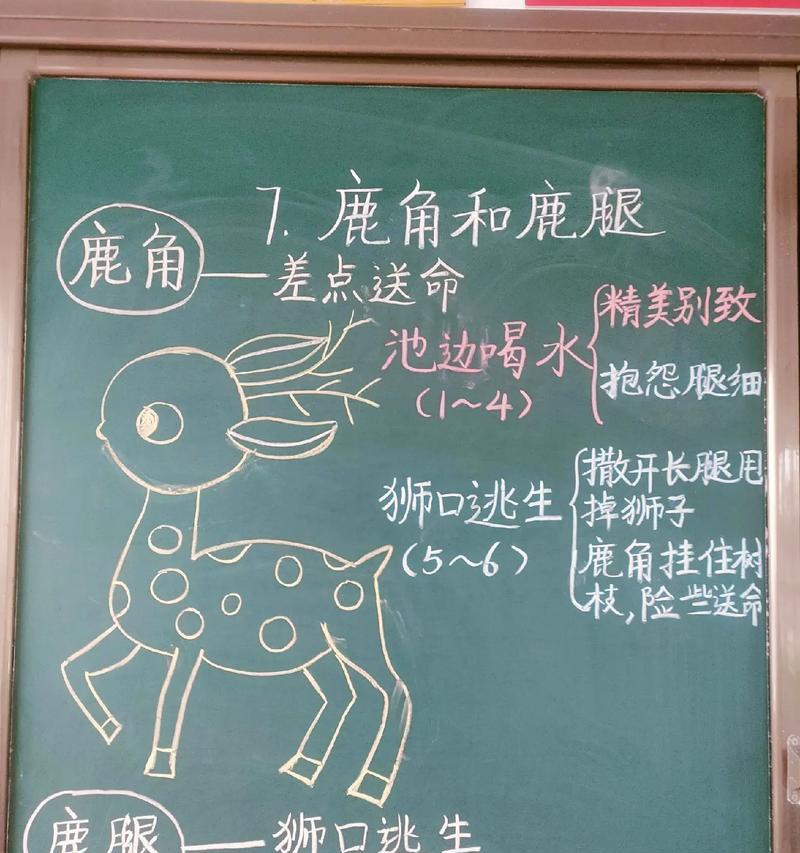 7. 鹿角和鹿腿
鹿角
差点送命
池边喝水
(1~4)
精美别致
抱怨腿细
狮口逃生
(5~6)
撒开长腿甩
掉狮子
鹿角挂住树
枝,险些送命
鹿腿
狮口逃生